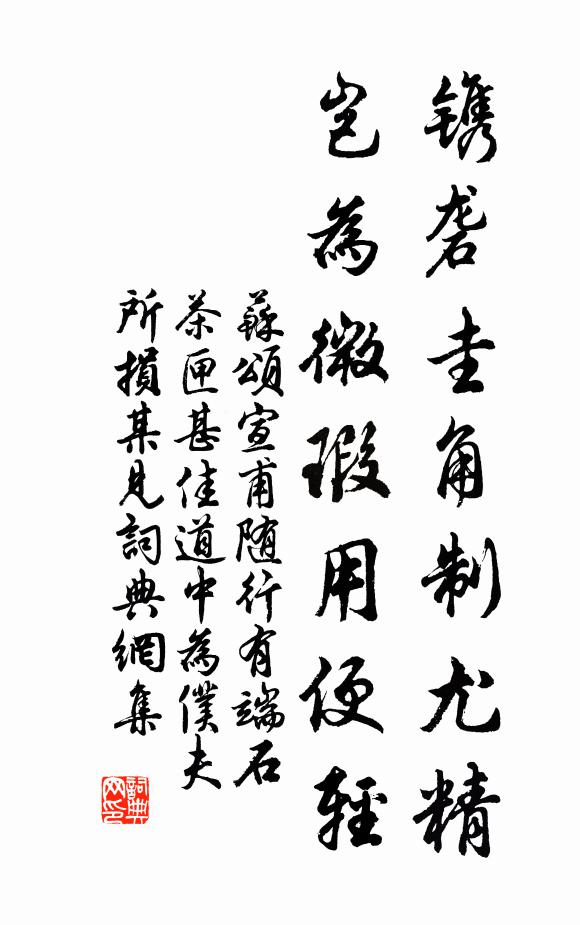 鐫砻圭角制尤精
岂為微瑕用便輕
蘇頌宣甫随行有端石
茶匣甚佳道中為僕夫
所損某見詞典網集
詞典
网印